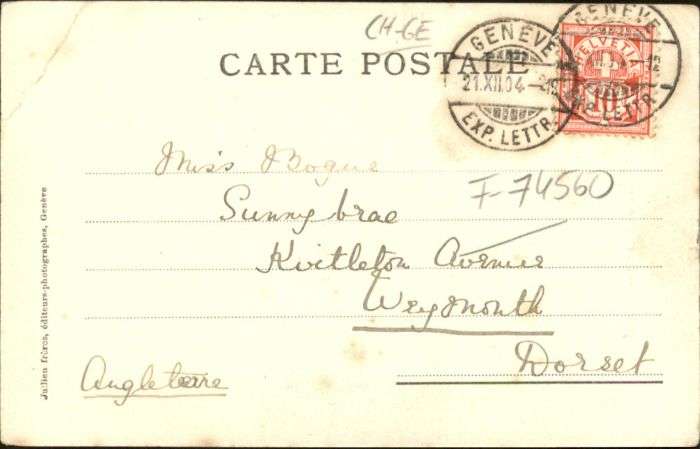 CH-GE
CARTE POSTALE
GENÈVE
21.XII.04
EXP. LETTR.
GENÈVE
EXP. LETTR.
HELVETIA
10
Miss Bogue
F-74560
Sunnybrae
Kvitleton Avenue
Weymouth
Dorset
Angleterre
Jullien frères, éditeurs-photographes, Genève